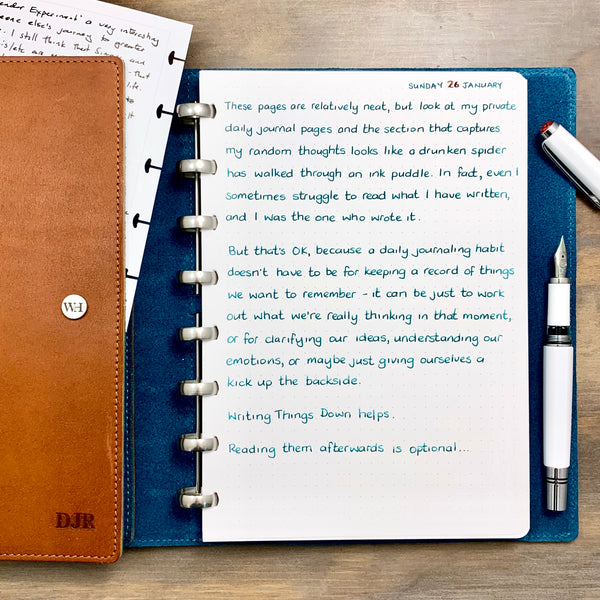 ender Experiment' a very interesting
eone else's journey to greater
. I still think that
that
life.
it
SUNDAY 26 JANUARY
These pages are relatively neat, but look at my private
daily journal pages and the section that captures
my random thoughts looks like a drunken spider
has walked through an ink puddle. In fact, even I
sometimes struggle to read what I have written,
and I was the one who wrote it.
But that's OK, because a daily journaling habit
doesn't have to be for keeping a record of things
we want to remember - it can be just to work
out what we're really thinking in that moment,
or for clarifying our ideas, understanding our
emotions, or maybe just giving ourselves a
kick up the backside.
Writing Things Down helps.
Reading them afterwards is optional...
WH
DJR